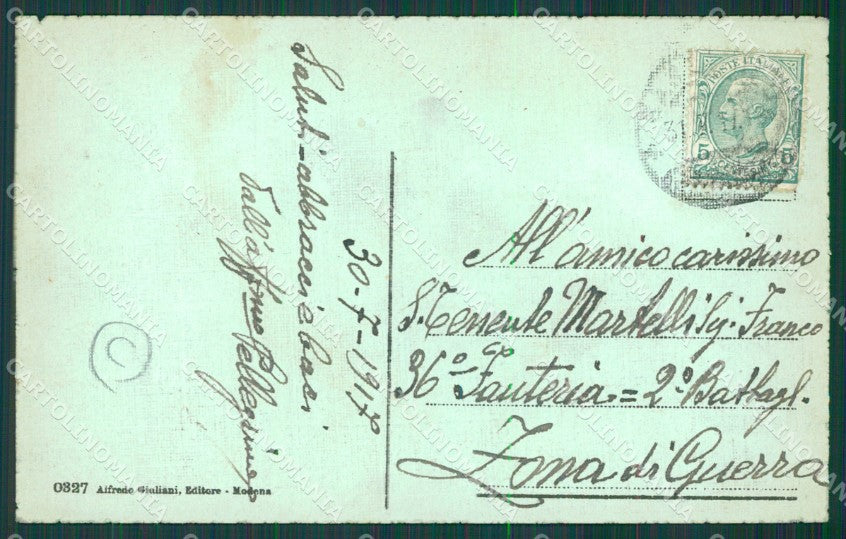 Saluti – abbracci e baci
dall'aff.mo Pellegrino
30-7-1917
POSTE ITALIANE
5 5
All'amico carissimo
S. Tenente Martelli Sig. Franco
36° Fanteria = 2° Battagl.
Zona di Guerra
C
0327 Alfredo Giuliani, Editore - Modena
CARTOLINOMANIA